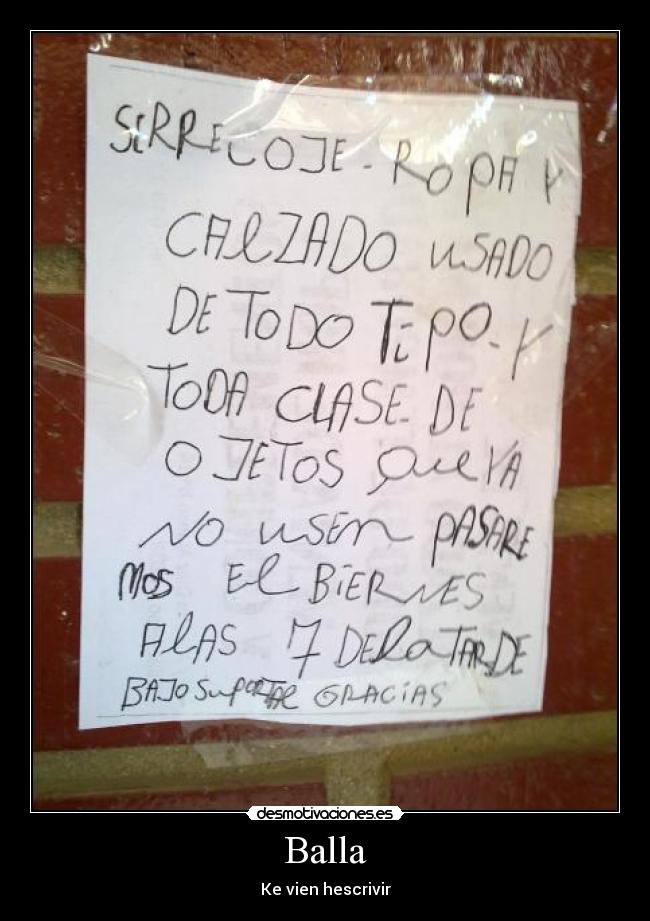 SERRECOJE - ROPA Y
CALZADO USADO
DE TODO TIPO - Y
TODA CLASE DE
OJETOS QUE YA
NO USEN PASARE
MOS EL BIERNES
ALAS 7 DE LA TARDE
BAJO SU PORTAL GRACIAS
desmotivaciones.es
Balla
Ke vien hescrivir